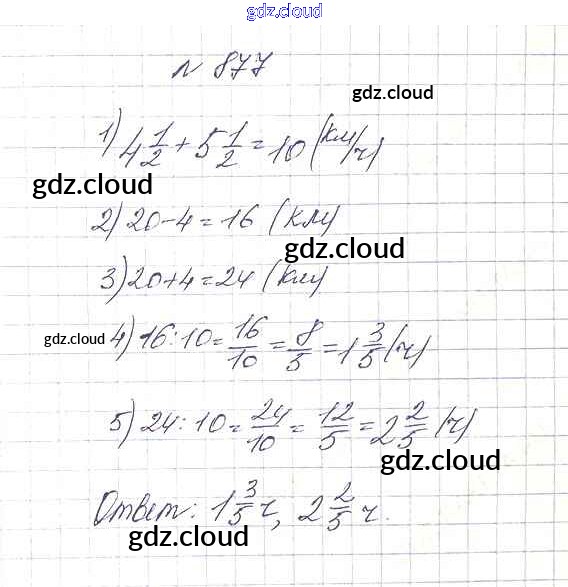 gdz.cloud
№ 877
gdz.cloud
1) 4 1/2 + 5 1/2 = 10 (км/ч)
gdz.cloud
2) 20-4=16 (км)
gdz.cloud
3) 20+4=24 (км)
gdz.cloud
4) 16:10=16/10=8/5=1 3/5 (ч)
5) 24:10=24/10=12/5=2 2/5 (ч)
gdz.cloud
Ответ: 1 3/5 ч, 2 2/5 ч.
gdz.cloud